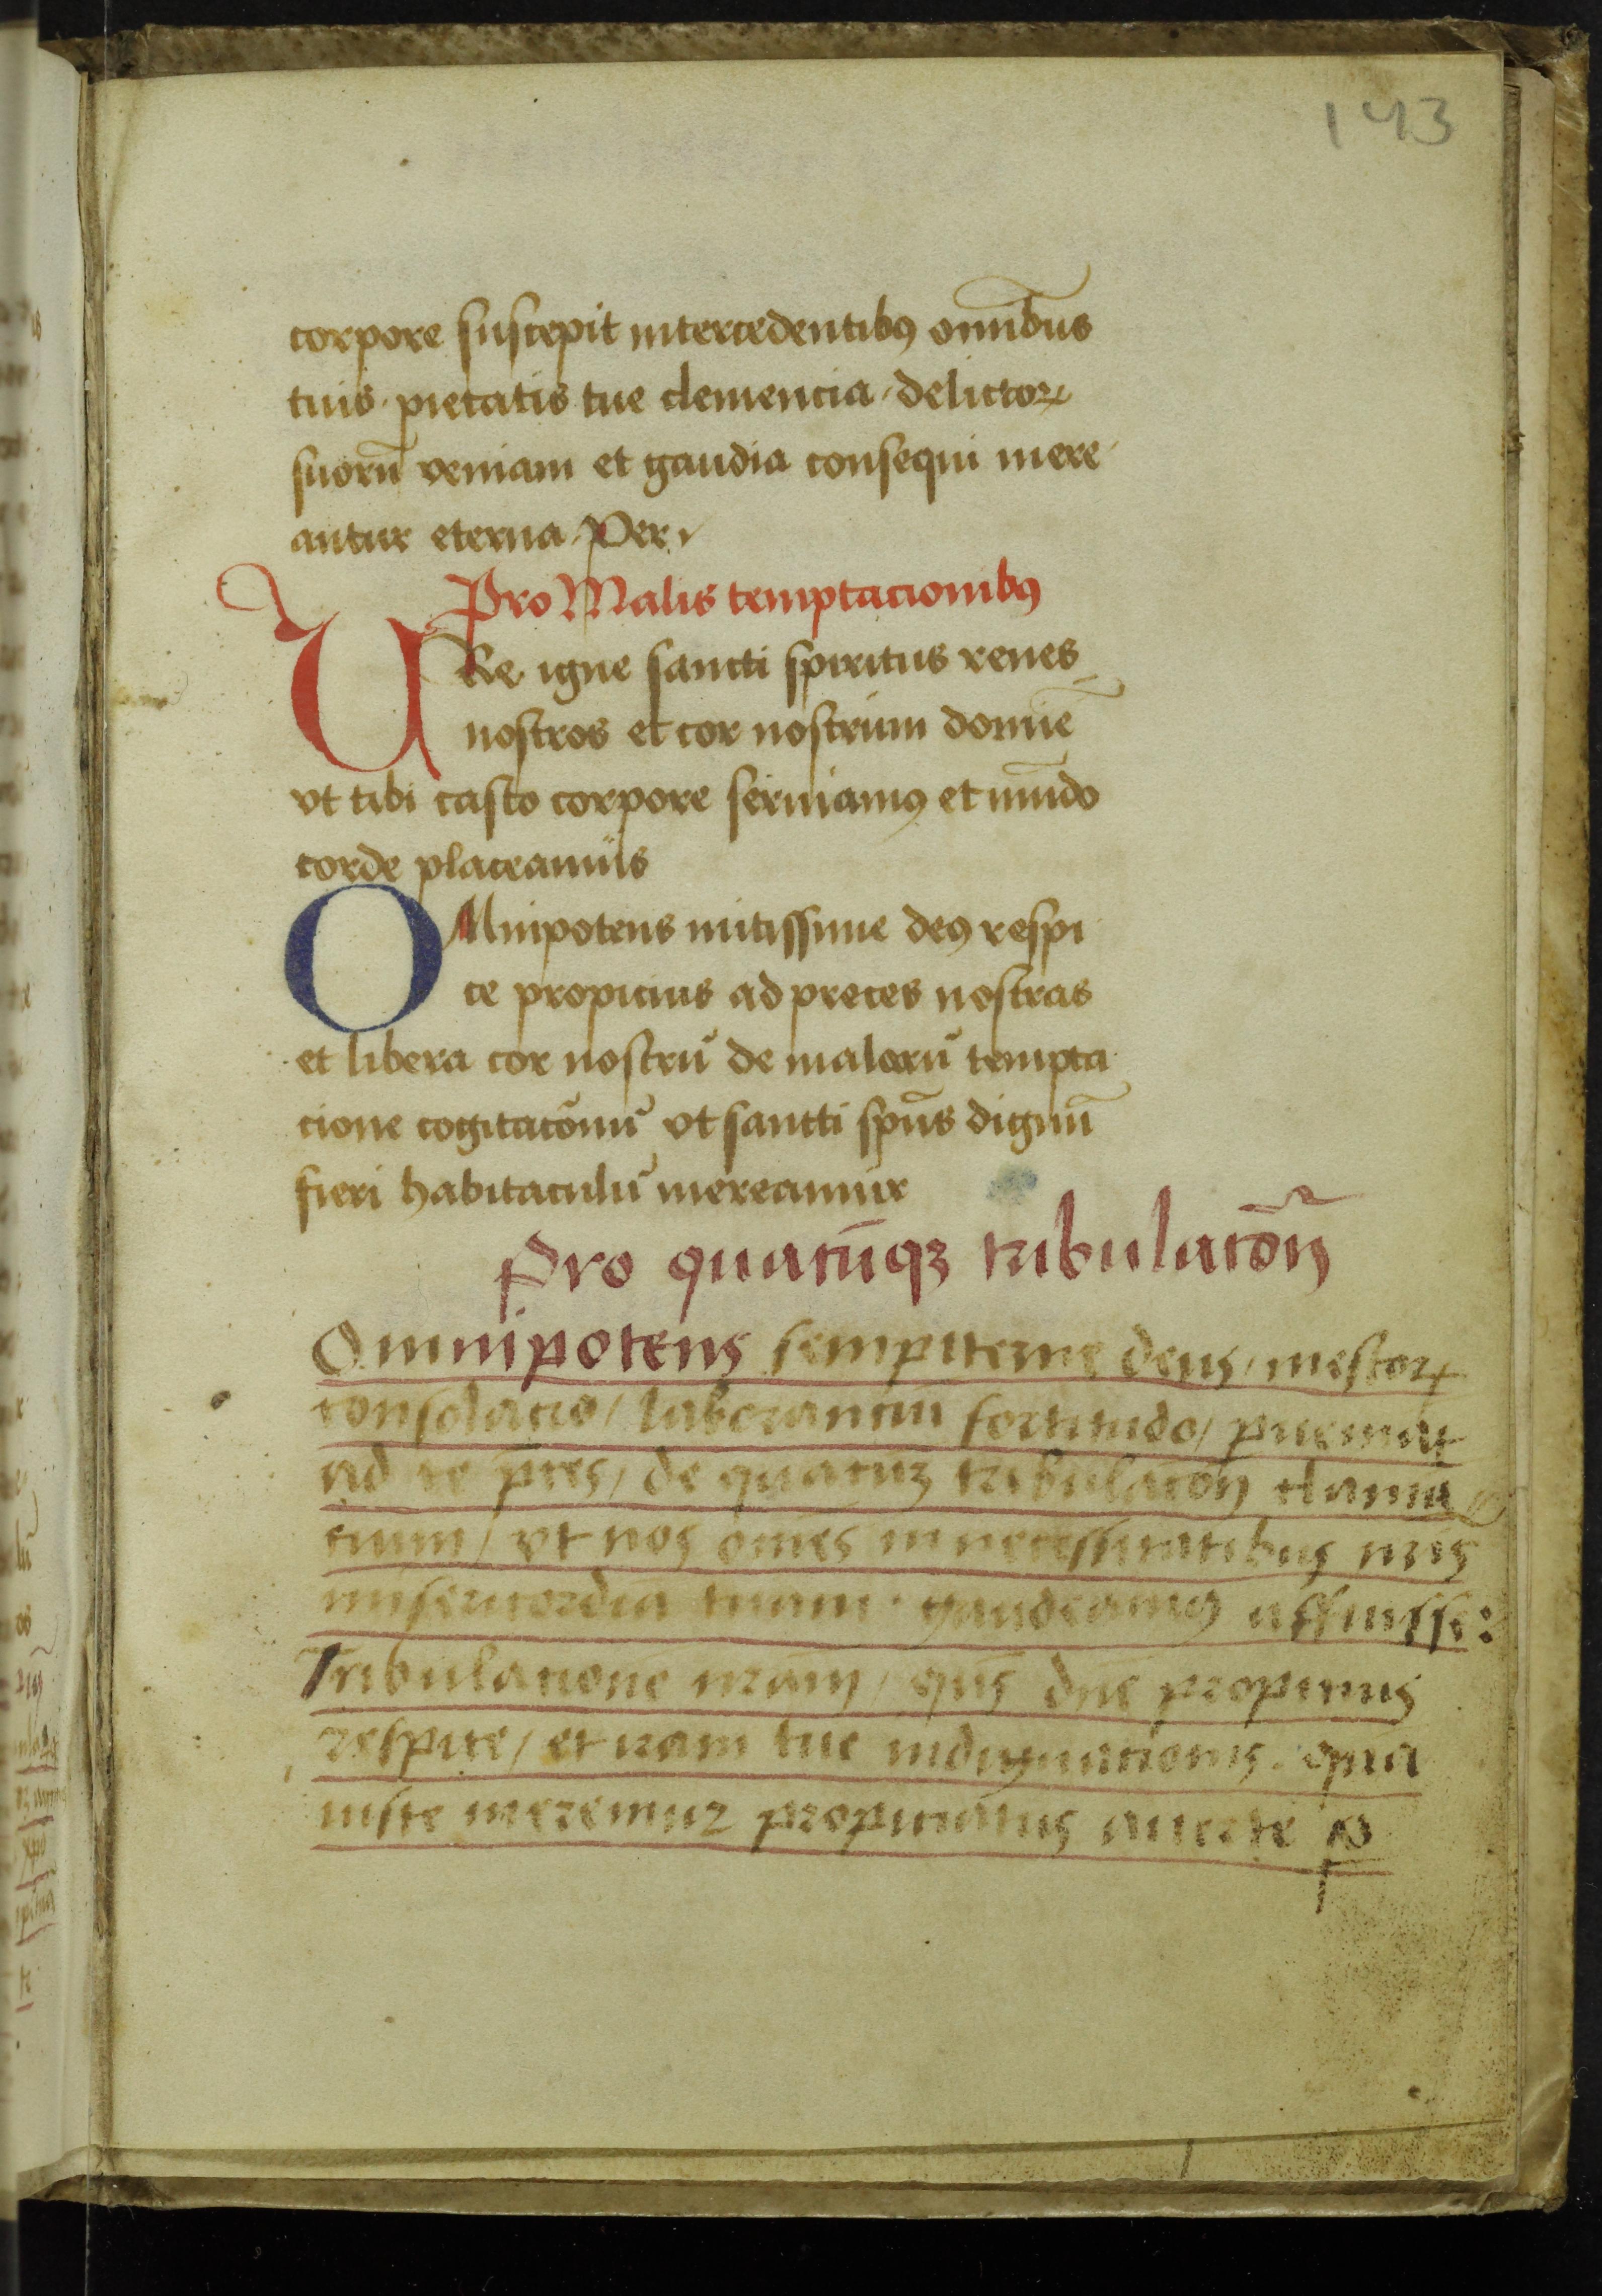 143
corpore suscepit intercedentibꝰ om̄ibus
tuis · pietatis tue clemencia · delictoꝝ
suorū veniam et gaudia consequi mere
antur eterna · Per
Pro Malis temptacionibꝰ
URe igne sancti spiritus renes
nostros et cor nostrum domīe
vt tibi casto corpore seruiamꝰ et mūdo
corde placeamus
OMnipotens mitissime deꝰ respi
ce propicius ad preces nostras
et libera cor nostrū de malorū tempta
cione cogitacōnū vt sancti spūs dignū
fieri habitaculū mereamur
Pro quacūqꝫ tribulacōn̄
Omnipotens sempiterne deus / mestoꝝ
consolacio / laborancīu fortitudo / pueniāt
ad te p̄ces / de quacūqꝫ tribulacōn̄ clamā
cium / vt nos om̄es in necessitatibus nr̄is
misericordiā tuam · gaudeamꝰ affuisse :
Tribulacionē nr̄am / qūs dn̄e propicius
respice / et iram tue indignacionis · qua
iuste meremur propiciatus auerte ꝑ